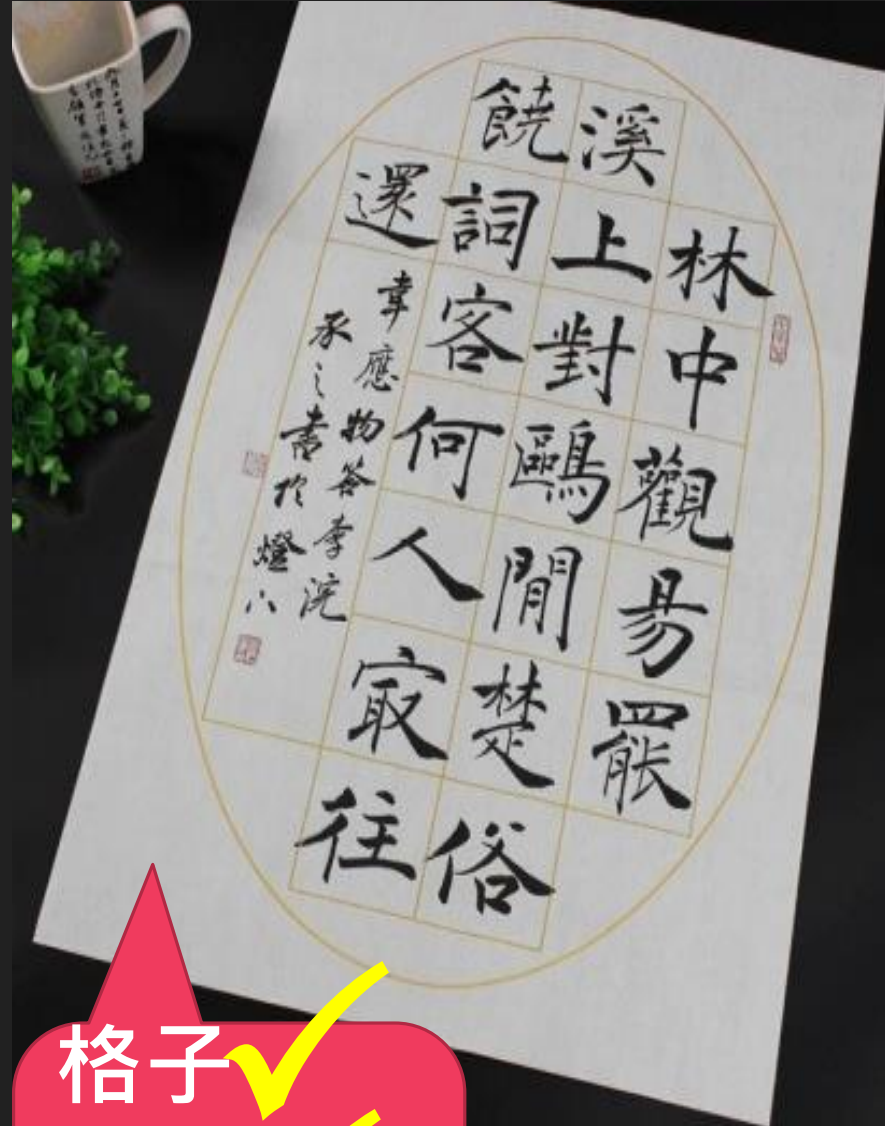 林中觀易罷
溪上對鷗閒楚俗
饒詞客何人寂往
還
韋應物答李浣
承之書於燈下
格子